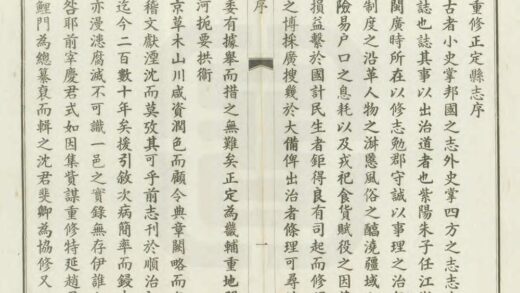 重修正定縣志序
古者小史掌邦國之志外史掌四方之志志
誌也誌其事以出治道者也紫陽朱子任江
閩廣時所在以修志勉郡守誠以事理之
制度之沿革人物之淑慝風俗之醨澆疆域
險易户口之息耗以及戎祀食貨賦役之因
損益繫於國計民生者鉅得良有司起而修
之博採廣搜幾於大備俾出治者條理可尋
序
一
委有據舉而措之無難矣正定為畿輔重地
河扼要拱衛
京草木山川咸資潤色而顧令典章闕略而
稽文獻湮沈而莫攷其可乎前志刊於順治
迄今二百數十年矣援引敘次病簡率而鋟
亦漫漶腐滅不可識一邑之實錄無存伊誰
咎耶前宰慶君式如因集貲謀重修特延趙
鯉門為總纂裒而輯之沈君斐卿為協修又